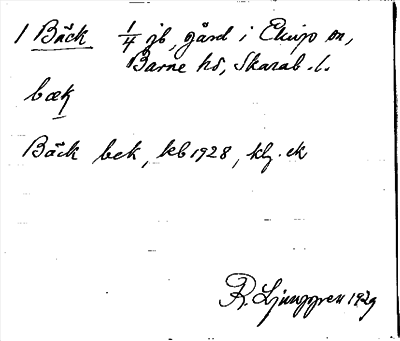 1 Bäck 1/4 jb, gård i Elinge sn,
Barne hd, Skarab. l.
bæk
Bäck bek, kb 1928, klg. ek
R. Ljunggren 1929